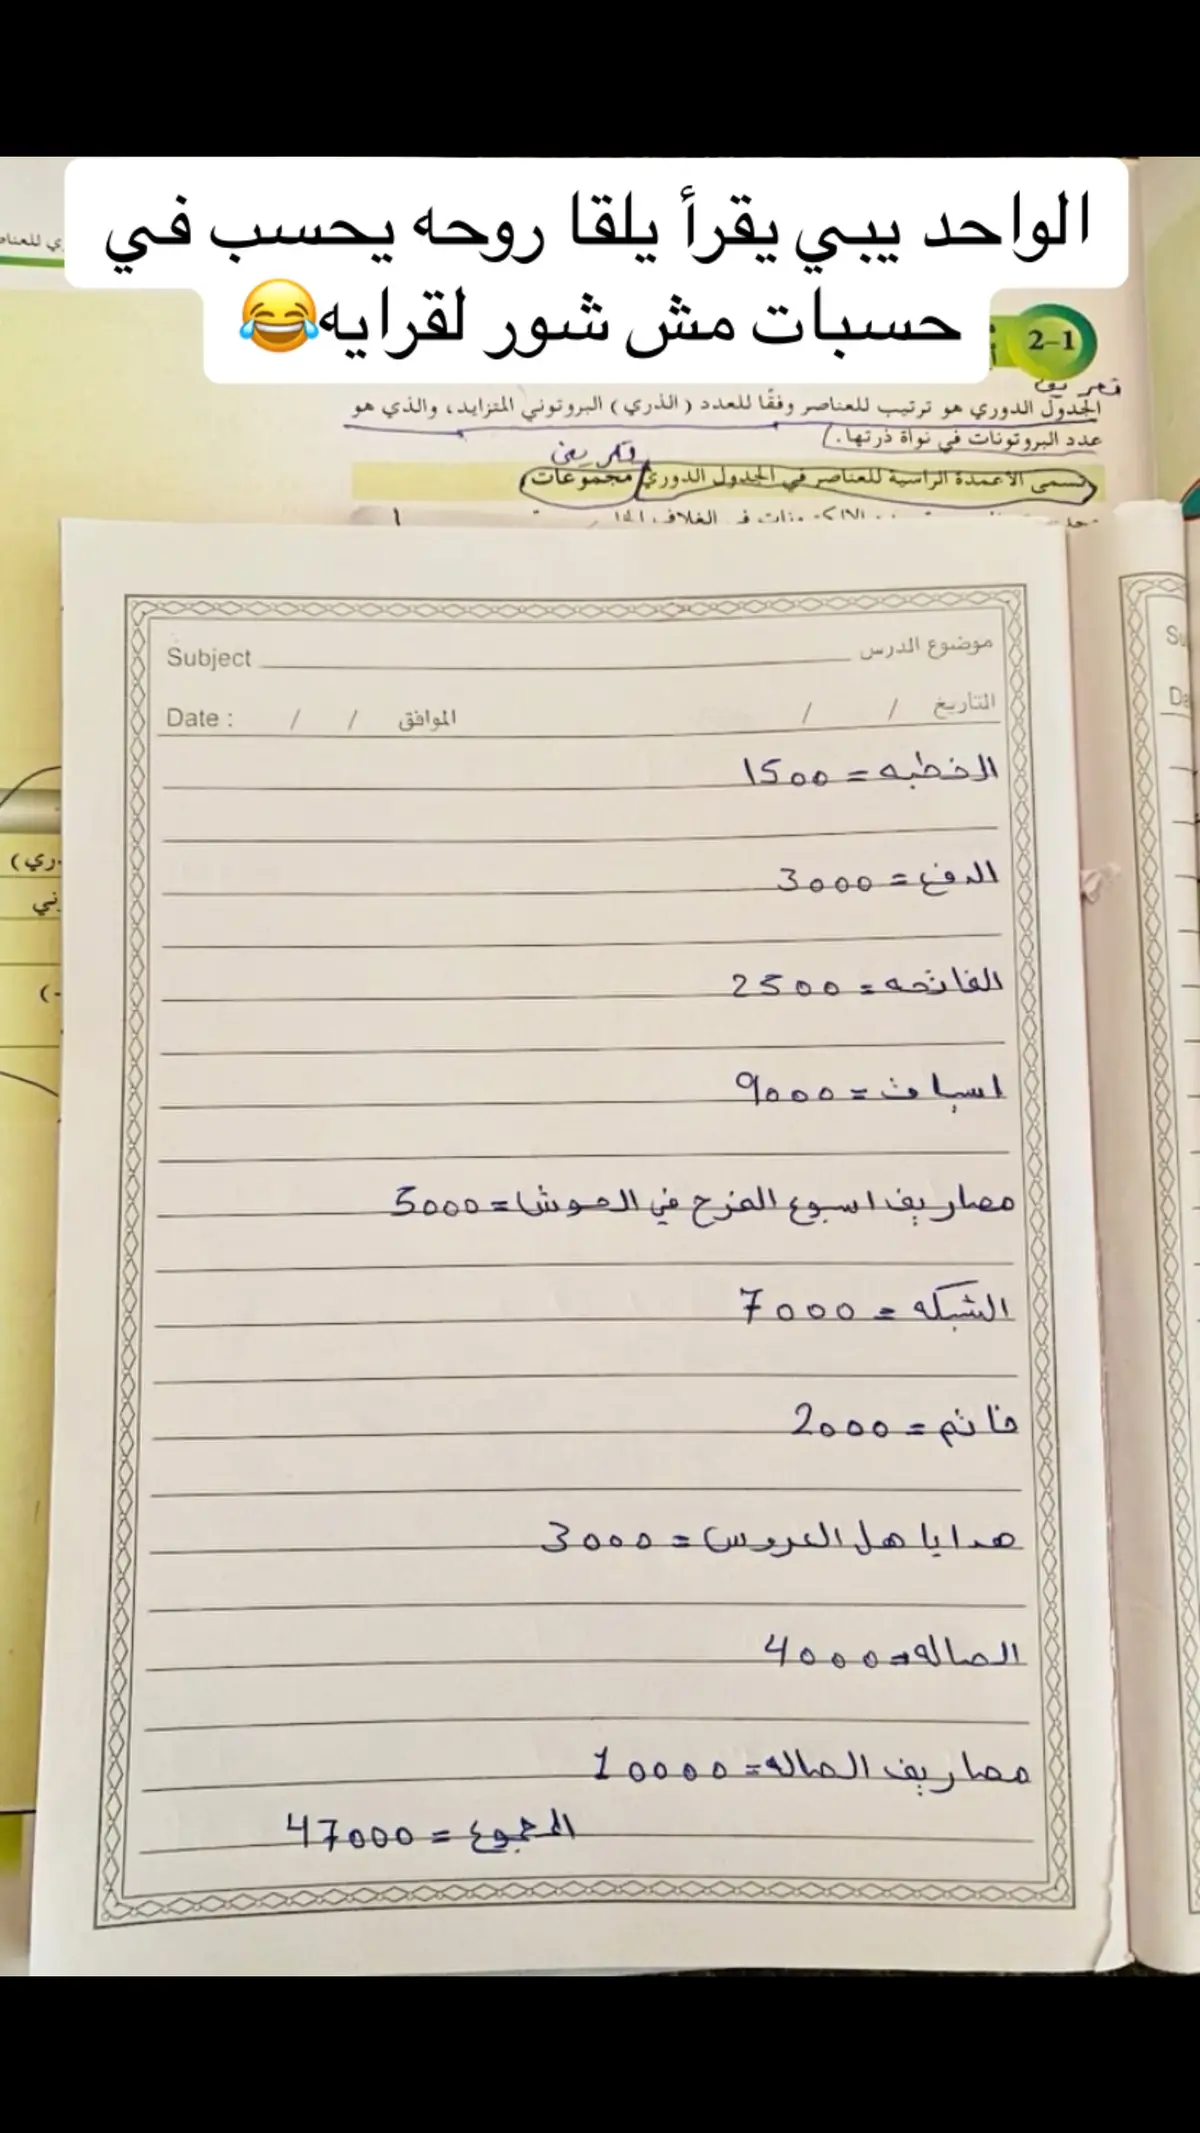 الواحد يبي يقرأ يلقا روحه يحسب في
حسبات مش شور لقرايه😂
2-1
تعريف
الجدول الدوري هو ترتيب للعناصر وفقًا للعدد (الذري) البروتوني المتزايد، والذي هو
عدد البروتونات في نواة ذرتها.
تعريف
تسمى الأعمدة الرأسية للعناصر في الجدول الدوري مجموعات
Subject موضوع الدرس
Date : / / الموافق / / التاريخ
الخطبه = 1500
الدفع = 3000
الفاتحه = 2500
اسباث = 9000
مصاريف اسبوع الفرح في الحوش = 5000
الشبكه = 7000
خاتم = 2000
هدايا هل العروس = 3000
الصاله = 4000
مصاريف الصاله = 10000
المجموع = 47000